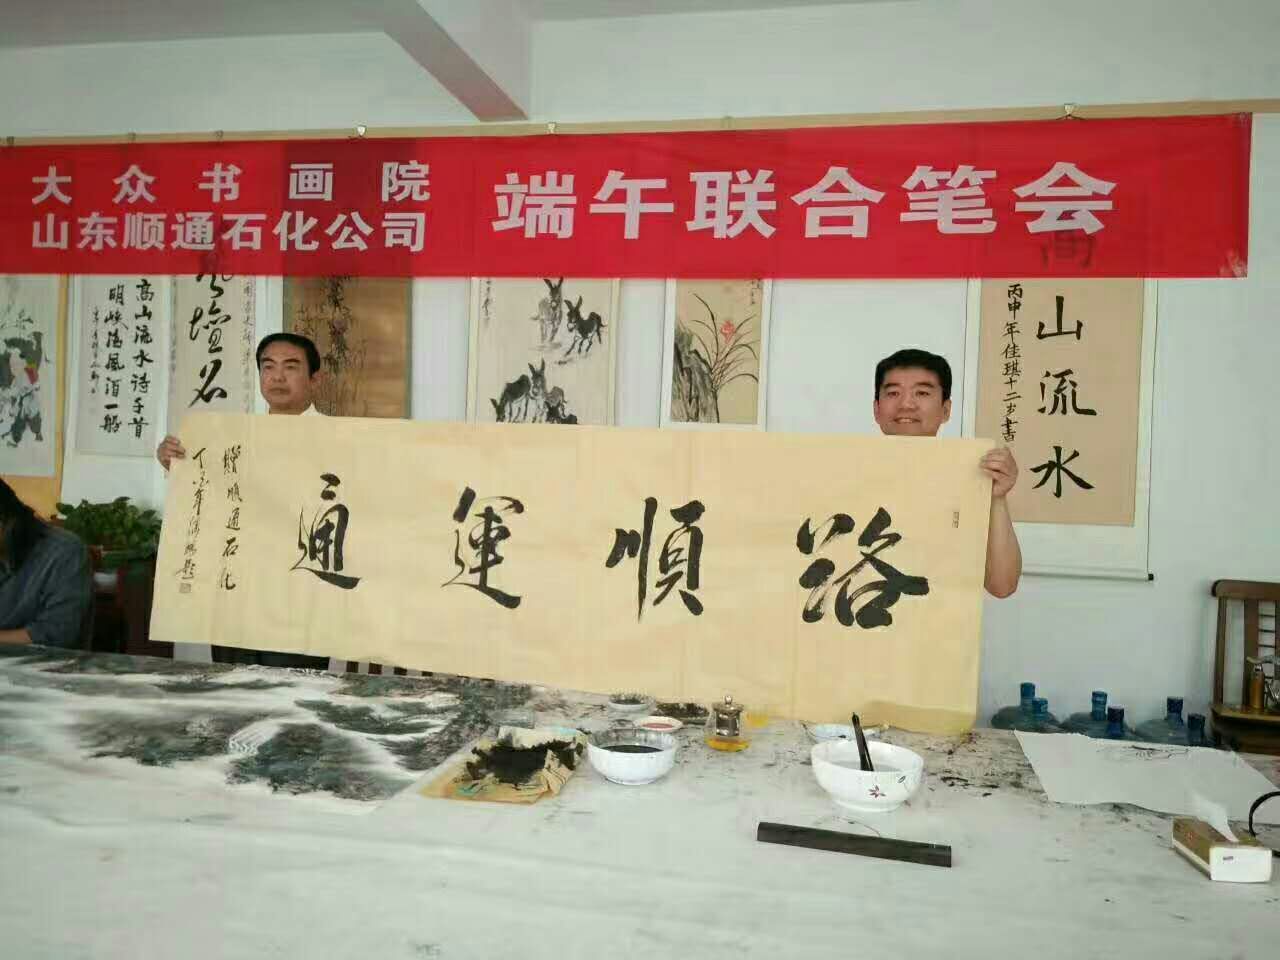 大众书画院
山东顺通石化公司
端午联合笔会
路順運通
贈順通石化
丁酉年
高山流水
丙申年佳琪十二岁書
高山流水诗千首
明峡清風酒一船
壇名